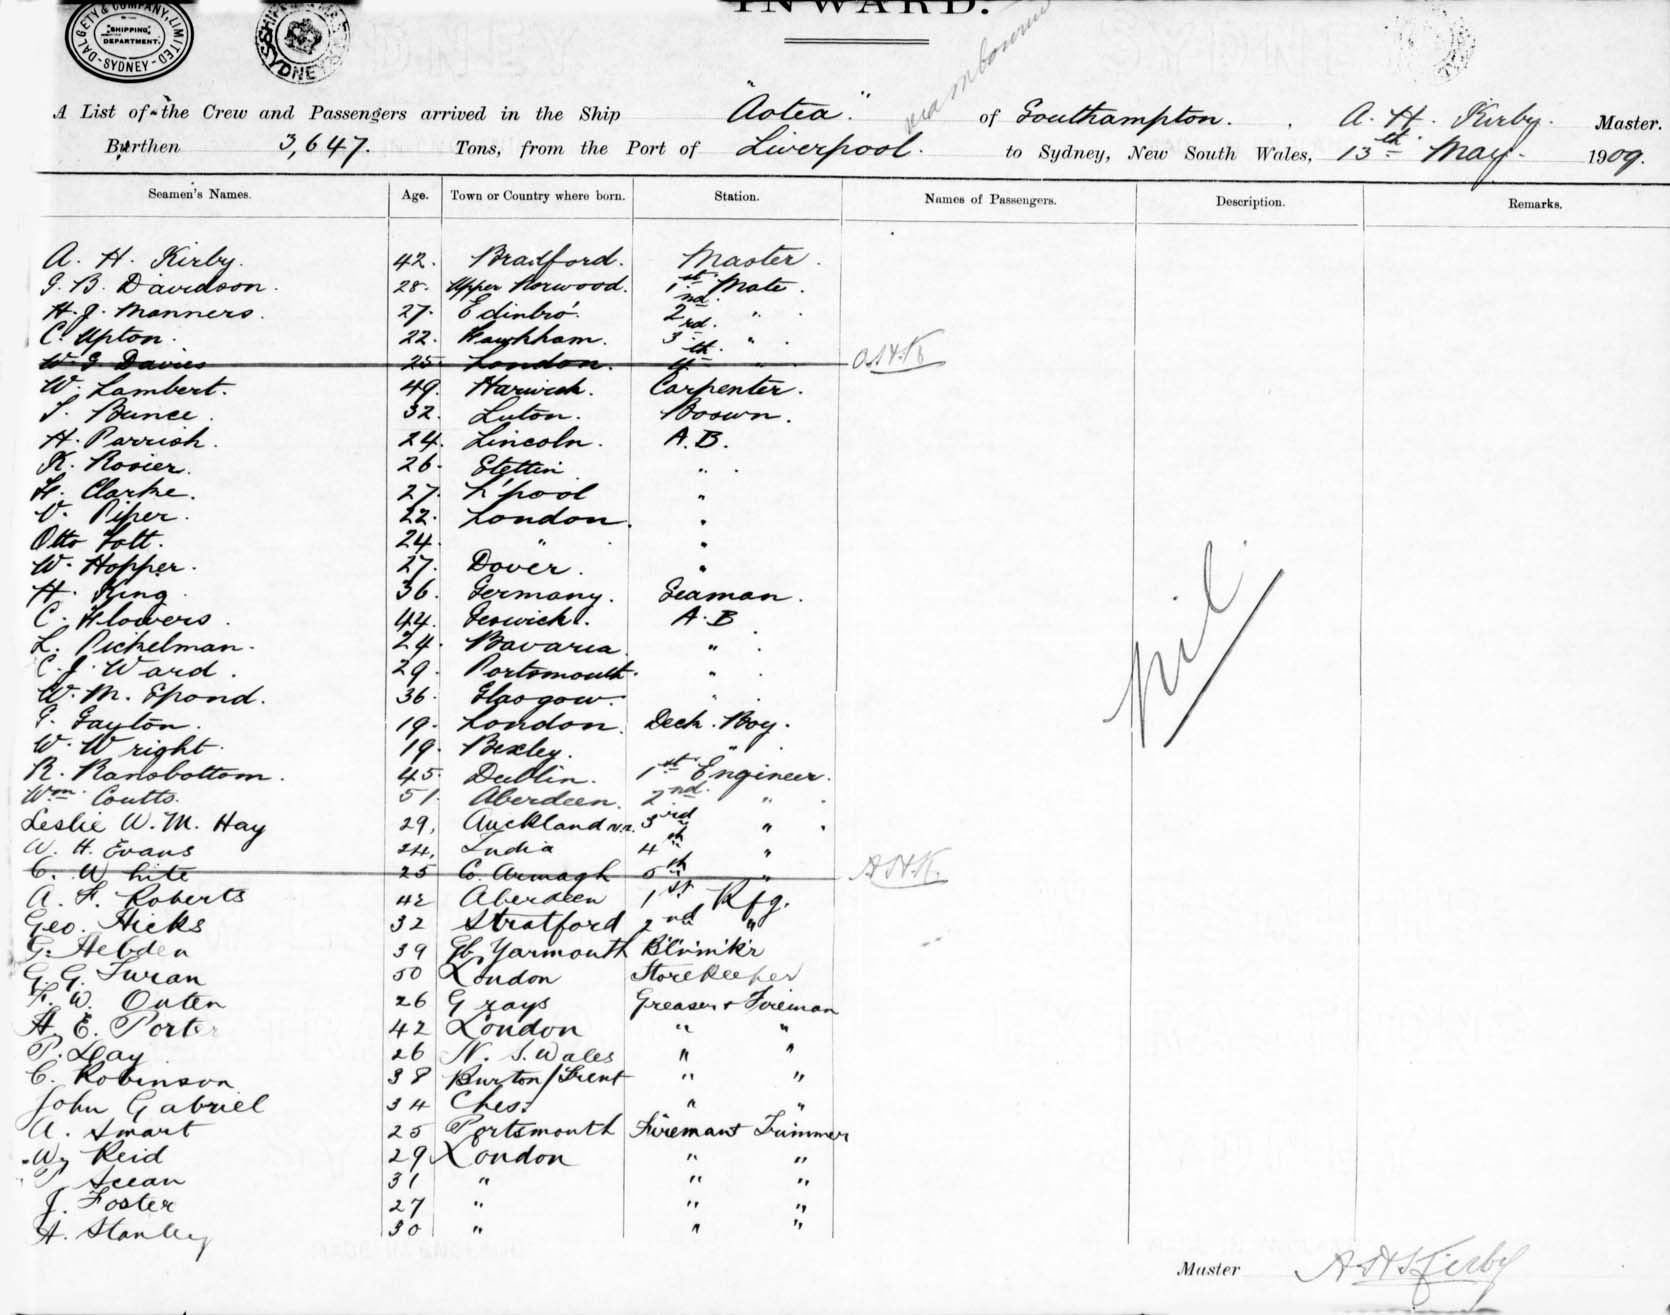 DALGETY & COMPANY, LIMITED
SHIPPING DEPARTMENT.
SYDNEY
SYDNEY
INWARD.
A List of the Crew and Passengers arrived in the Ship "Aotea" via Melbourne of Southampton. A. H. Kirby. Master.
Burthen 3,647. Tons, from the Port of Liverpool. to Sydney, New South Wales, 13th May. 1909.
Seamen's Names. Age. Town or Country where born. Station. Names of Passengers. Description. Remarks.
A. H. Kirby. 42. Bradford. Master.
J. B. Davidson. 28. Upper Norwood. 1st Mate.
H. J. Manners. 27. Edinbro'. 2nd "
C. Upton. 22. 3rd. "
W. J. Davies 25. London. 4th " A.H.K
W. Lambert. 49. Harwich. Carpenter.
S. Bunce. 32. Luton. Boswn.
H. Parrish. 24. Lincoln. A.B.
K. Rosier. 26. Stettin "
H. Clarke. 27. L'pool "
V. Piper. 22. London. "
Otto Tott. 24. " "
W. Hopper. 27. Dover. "
H. King. 36. Germany. Seaman.
C. Flowers. 44. A.B
L. Pickelman. 24. Bavaria. "
C. J. Ward. 29. Portsmouth. "
W. M. Spond. 36. Glasgow. "
G. Gayton. 19. London. Deck Boy.
W. Wright. 19. Bexley. "
R. Ransbottom. 45. Dublin. 1st Engineer.
Wm. Coutts. 51. Aberdeen. 2nd. "
Leslie W. M. Hay 29, Auckland N.Z. 3rd "
W. H. Evans 24, India 4th "
C. White 25 Co. Armagh 5th " A.H.K.
A. F. Roberts 42 Aberdeen 1st Rfg.
Geo. Hicks 32 Stratford 2nd "
G. Hebden 39 Gt. Yarmouth B'l'r'm'k'r
G. G. Turan 50 London Storekeeper
F. W. Outen 26 Grays Greaser & Fireman
H. E. Porter 42 London " "
P. Day 26 N. S. Wales " "
C. Robinson 38 Burton/Trent " "
John Gabriel 34 Ches. " "
A. Smart 25 Portsmouth Fireman & Trimmer
W. Reid 29 London " "
31 " " "
J. Foster 27 " " "
A. Stanley 30 " " "
nil
Master A H Kirby